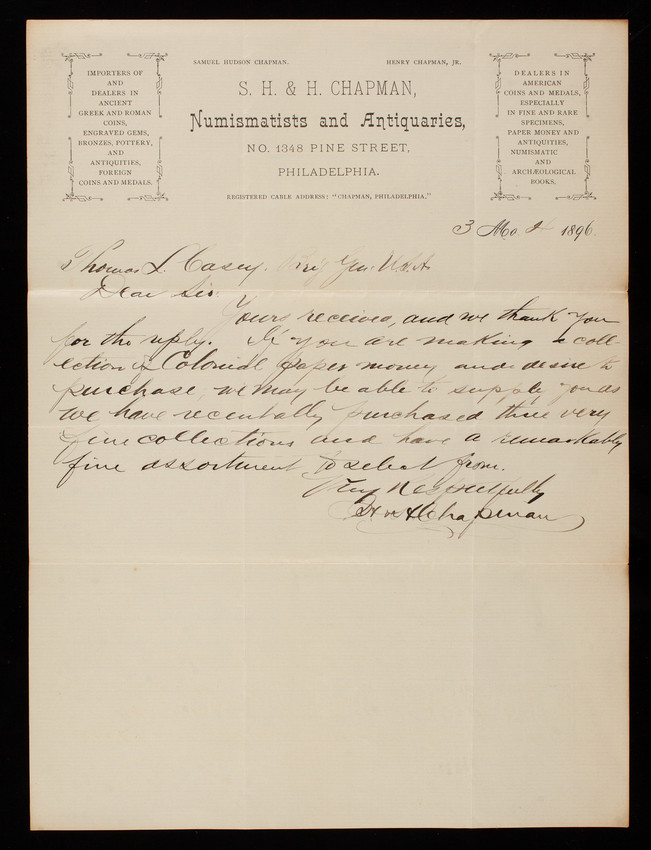 SAMUEL HUDSON CHAPMAN. HENRY CHAPMAN, JR.
IMPORTERS OF
AND
DEALERS IN
ANCIENT
GREEK AND ROMAN
COINS,
ENGRAVED GEMS,
BRONZES, POTTERY,
AND
ANTIQUITIES,
FOREIGN
COINS AND MEDALS.
S. H. & H. CHAPMAN,
Numismatists and Antiquaries,
NO. 1348 PINE STREET,
PHILADELPHIA.
REGISTERED CABLE ADDRESS: "CHAPMAN, PHILADELPHIA."
DEALERS IN
AMERICAN
COINS AND MEDALS,
ESPECIALLY
IN FINE AND RARE
SPECIMENS,
PAPER MONEY AND
ANTIQUITIES,
NUMISMATIC
AND
ARCHÆOLOGICAL
BOOKS.
3 Mo. 4 1896.
Thomas L. Casey. Brig Gen. U.S.A.
Dear Sir
Yours received, and we thank you
for the reply. If you are making a coll-
ection of Colonial paper money and desire to
purchase, we may be able to supply you as
we have recently purchased three very
fine collections and have a remarkably
fine assortment to select from.
Very Respectfully
S H & H Chapman